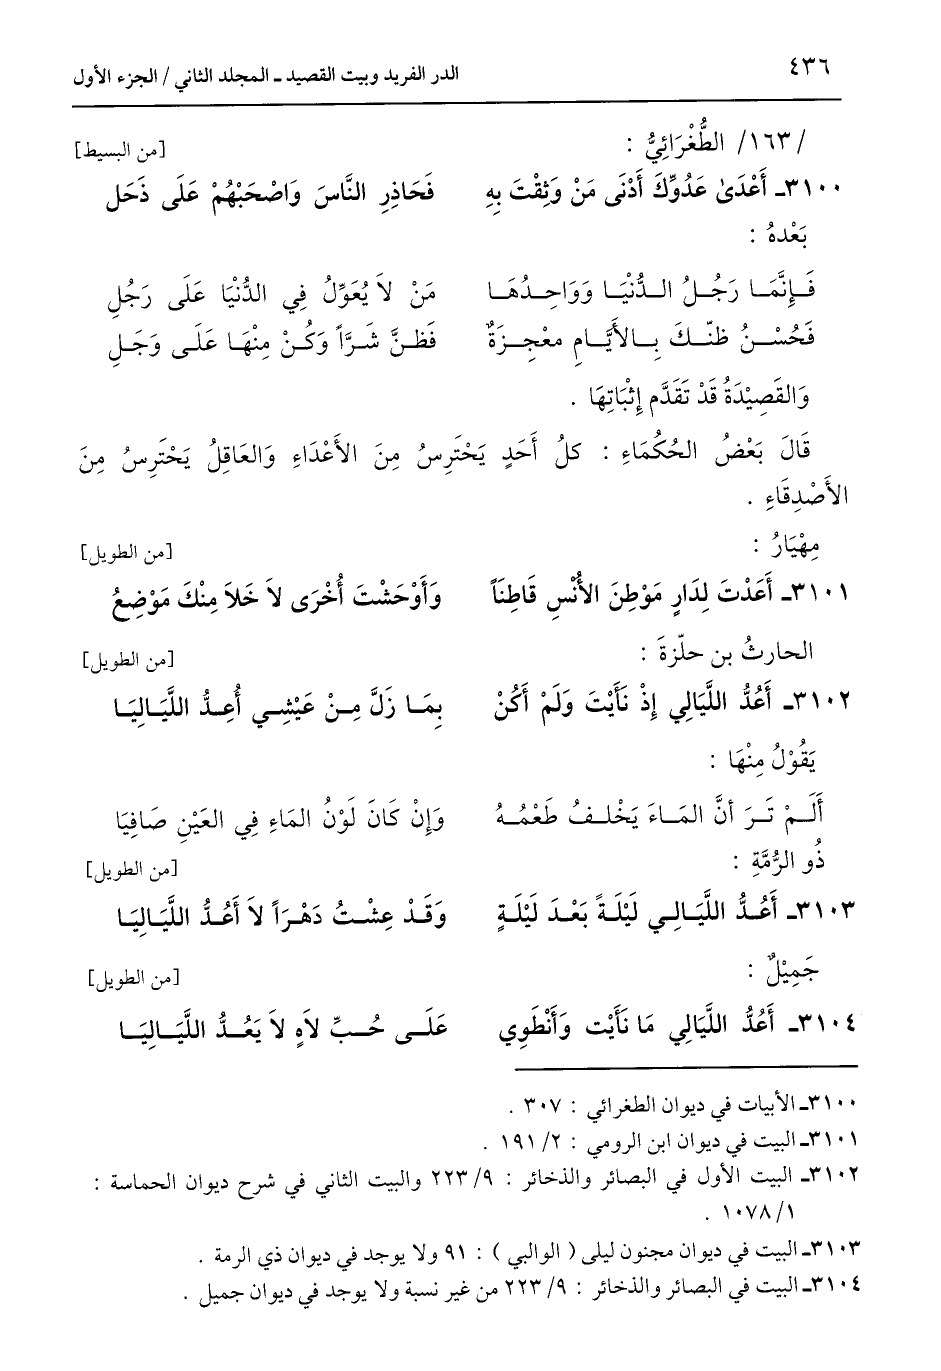 ٤٣٦ الدر الفريد وبيت القصيد ـ المجلد الثاني / الجزء الأول
/١٦٣/ الطُّغْرَائِيُّ : [من البسيط]
٣١٠٠ـ أَعْدَىٰ عَدُوِّكَ أَدْنَى مَنْ وَثِقْتَ بِهِ فَحَاذِرِ النَّاسَ وَاصْحَبْهُمْ عَلَى ذَحَلِ
بَعْدهُ :
فَإِنَّمَا رَجُلُ الدُّنْيَا وَوَاحِدُهَا مَنْ لاَ يُعَوِّلُ فِي الدُّنْيَا عَلَى رَجُلِ
فَحُسْنُ ظنّكَ بِالأَيَّامِ معْجِزَةٌ فَظنَّ شَرَّاً وَكُنْ مِنْهَا عَلَى وَجَلِ
وَالقَصِيْدَةُ قَدْ تَقَدَّم إِثْبَاتِهَا .
قَالَ بَعْضُ الحُكَمَاءِ : كلُ أَحَدٍ يَحْتَرِسُ مِنَ الأَعْدَاءِ وَالعَاقِلُ يَحْتَرِسُ مِنَ
الأَصْدِقَاءِ .
مِهْيَارُ : [من الطويل]
٣١٠١ـ أَعَدْتَ لِدَارٍ مَوْطِنَ الأُنْسِ قَاطِنَاً وَأَوْحَشْتَ أُخْرَى لاَ خَلاَ مِنْكَ مَوْضِعُ
الحارثُ بن حلّزةَ : [من الطويل]
٣١٠٢ـ أَعُدُّ اللَّيَالِي إِذْ نَأَيْتَ وَلَمْ أَكُنْ بِمَا زَلَّ مِنْ عَيْشِي أُعِدُّ اللَّيَالِيَا
يَقُوْلُ مِنْهَا :
أَلَمْ تَرَ أنَّ المَاءَ يَخْلفُ طَعْمُهُ وَإِنْ كَانَ لَوْنُ المَاءِ فِي العَيْنِ صَافِيَا
ذُو الرُّمَّةِ : [من الطويل]
٣١٠٣ـ أَعُدُّ اللَّيَالِي لَيْلَةً بَعْدَ لَيْلَةٍ وَقَدْ عِشْتُ دَهْرَاً لاَ أَعُدُّ اللَّيَالِيَا
جَمِيْلٌ : [من الطويل]
٣١٠٤ـ أَعُدُّ اللَّيَالِي مَا نَأَيْت وَأَنْطَوِي عَلَى حُبِّ لاَهٍ لاَ يَعُدُّ اللَّيَالِيَا
٣١٠٠ـ الأبيات في ديوان الطغرائي : ٣٠٧ .
٣١٠١ـ البيت في ديوان ابن الرومي : ٢/ ١٩١ .
٣١٠٢ـ البيت الأول في البصائر والذخائر : ٩/ ٢٢٣ والبيت الثاني في شرح ديوان الحماسة :
١/ ١٠٧٨ .
٣١٠٣ـ البيت في ديوان مجنون ليلى ( الوالبي ) : ٩١ ولا يوجد في ديوان ذي الرمة .
٣١٠٤ـ البيت في البصائر والذخائر : ٩/ ٢٢٣ من غير نسبة ولا يوجد في ديوان جميل .